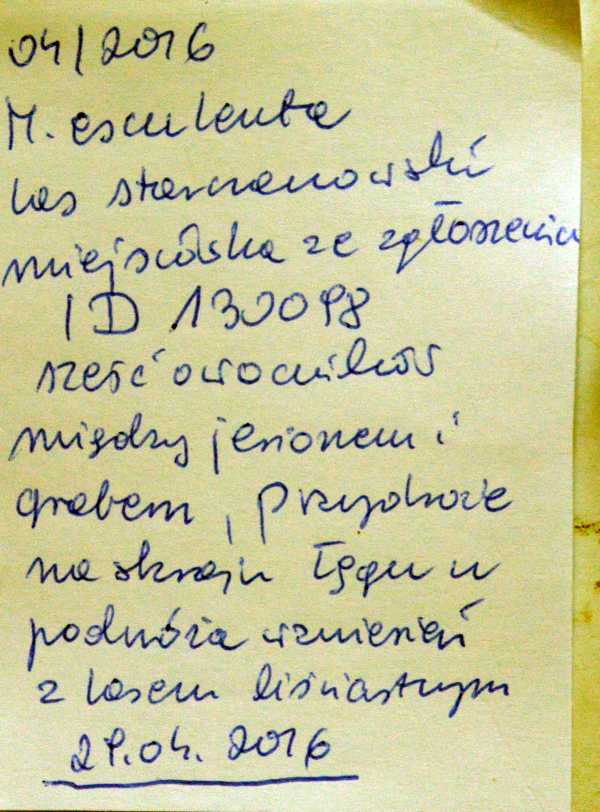 04/2016
M. esculenta
las starczanowski
miejscówka ze zgłoszenia
ID 130098
sześć owocników
między jesionem i
grabem, przydroże
na skraju łęgu u
podnóża wzniesień
z lasem liściastym
29.04.2016